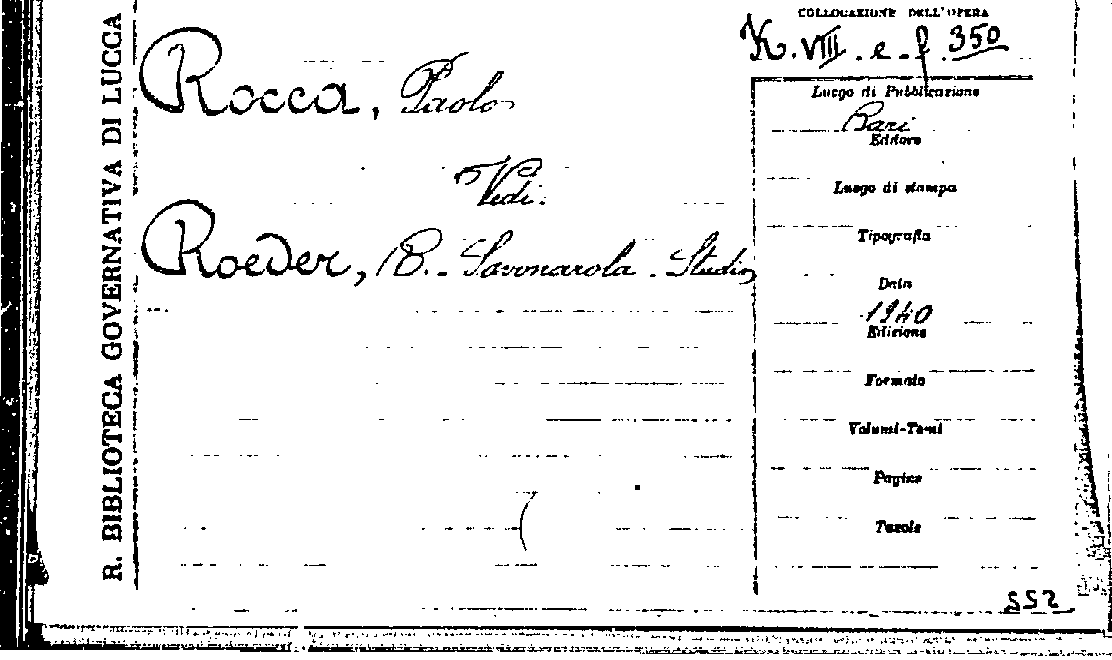 R. BIBLIOTECA GOVERNATIVA DI LUCCA
COLLOCAZIONE DELL'OPERA
K. VIII. e. f. 350
Rocca, Paolo
Vedi:
Roeder, R. Savonarola. Studio
Luogo di Pubblicazione
Bari
Editore
Luogo di stampa
Tipografia
Data
1940
Edizione
Formato
Volumi-Tomi
Pagine
Tavole
552